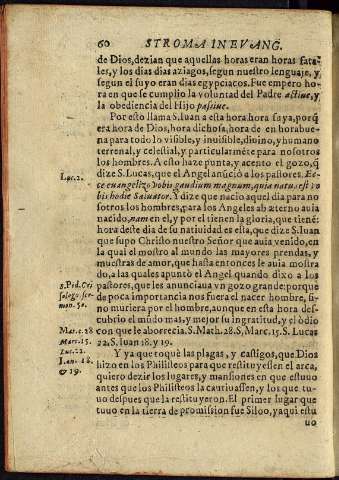 60 STROMA IN EVANG.
de Dios, dezian que aquellas horas eran horas fata-
les, y los dias dias aziagos, segun nuestro lenguaje, y
segun el suyo eran dias egypciacos. Fue empero ho-
ra en que se cumplio la voluntad del Padre actiue, y
la obediencia del Hijo passiue.
Por esto llama S. Iuan a esta hora hora suya, porq̃
era hora de Dios, hora dichosa, hora de en horabue-
na para todo lo visible, y inuisible, diuino, y humano
terrenal, y celestial, y particularmẽte para nosotros
los hombres. A esto haze punta, y acento el gozo, q̃
Luc. 2.
dize S. Lucas, que el Angel anũciò a los pastores. Ec-
ce euangelizo vobis gaudium magnum, quia natus est vo
bis hodie Saluator. Y dize que nacio aquel dia para no
sotros los hombres, para los Angeles ab æterno auia
nacido, nam en el, y por el tienen la gloria, que tiené:
hora deste dia de su natiuidad es esta, que dize S. Iuan
que supo Christo nuestro Señor que auia venido, en
la qual el mostro al mundo las mayores prendas, y
muestras de amor, que hasta entonces le auia mostra
do, a las quales apuntò el Angel quando dixo a los
S. Ped. Cri
sologo ser-
mon. 50.
pastores, que les anunciaua vn gozo grande: porque
de poca importancia nos fuera el nacer hombre, si
no muriera por el hombre, aunque en esta hora des-
cubrio el mũdo mas, y mejor su ingratitud, y el òdio
Mat. c. 28
Marc. 15.
Luc. 22.
Ioan. 18.
& 19.
con que le aborrecia. S. Math. 28. S, Marc. 15. S. Lucas
22. S. Iuan 18. y 19.
Y ya que toquè las plagas, y castigos, que Dios
hizo en los Philisteos para que restituyessen el arca,
quiero dezir los lugares, y mansiones en que estuuo
antes que los Philisteos la cautiuassen, y los que tu-
uo despues que la restituyeron. El primer lugar que
tuuo en la tierra de promission fue Siloo, y aqui estu
uo